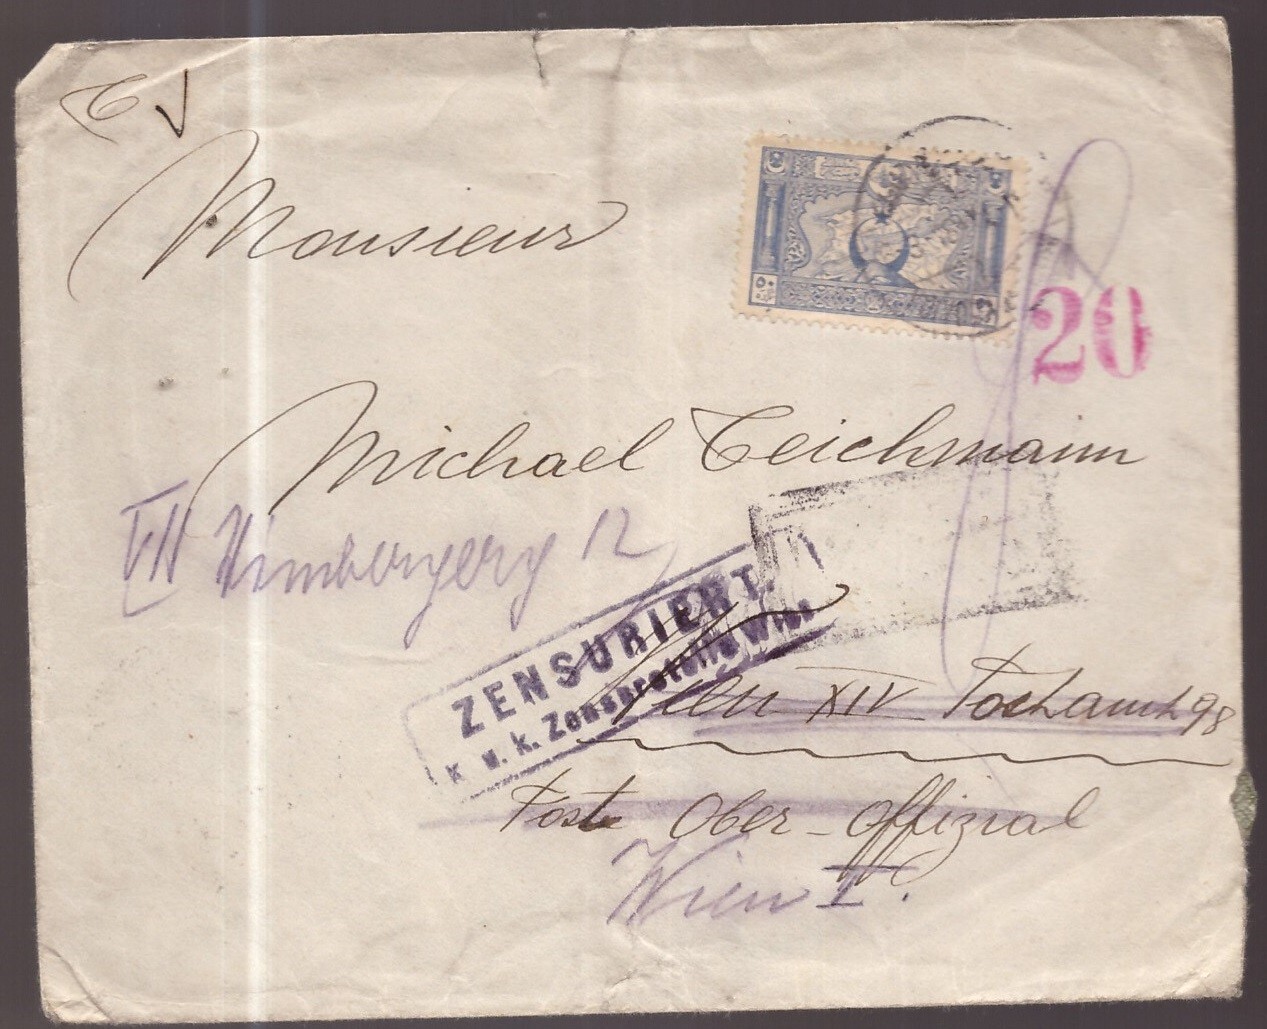 Monsieur
20
Michael Teichmann
VII 12
ZENSURIERT.
K. u. k. Zensurstelle Wien
Wien XIV Postamt 98
Post Ober-Offizial
Wien I.